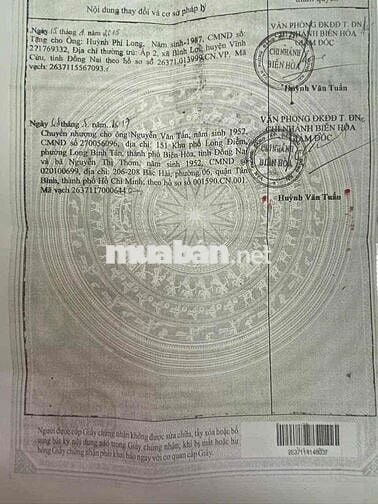 Nội dung thay đổi và cơ sở pháp lý
VĂN PHÒNG ĐKĐĐ T. ĐN
CHI NHÁNH BIÊN HÒA
GIÁM ĐỐC
Ngày
Tặng cho Ông: Huỳnh Phi Long, Năm sinh:1987, CMND số:
271769332, Địa chỉ thường trú: Ấp 2, xã Bình Lợi, huyện Vĩnh
Cửu, tỉnh Đồng Nai theo hồ sơ số 26371.013999.CN.VP. Mã
vạch: 2637115567093.
CHI NHÁNH
BIÊN HÒA
Huỳnh Văn Tuấn
VĂN PHÒNG ĐKĐĐ T. ĐN
CHI NHÁNH BIÊN HÒA
GIÁM ĐỐC
Ngày
Chuyển nhượng cho ông Nguyễn Văn Tấn, năm sinh 1952,
CMND số 270056096, địa chỉ: 151 Khu phố Long Điềm,
phường Long Bình Tân, thành phố Biên Hòa, tỉnh Đồng Nai
và bà Nguyễn Thị Thơm, năm sinh 1952, CMND số
020100699, địa chỉ: 206-208 Bắc Hải, phường 06, quận Tân
Bình, thành phố Hồ Chí Minh; theo hồ sơ số 001590.CN.001.
CHI NHÁNH
BIÊN HÒA
Huỳnh Văn Tuấn
muaban.net
Người được cấp Giấy chứng nhận không được sửa chữa, tẩy xóa hoặc bổ
sung bất kỳ nội dung nào trong Giấy chứng nhận; khi bị mất hoặc hư
hỏng Giấy chứng nhận phải khai báo ngay với cơ quan cấp Giấy.